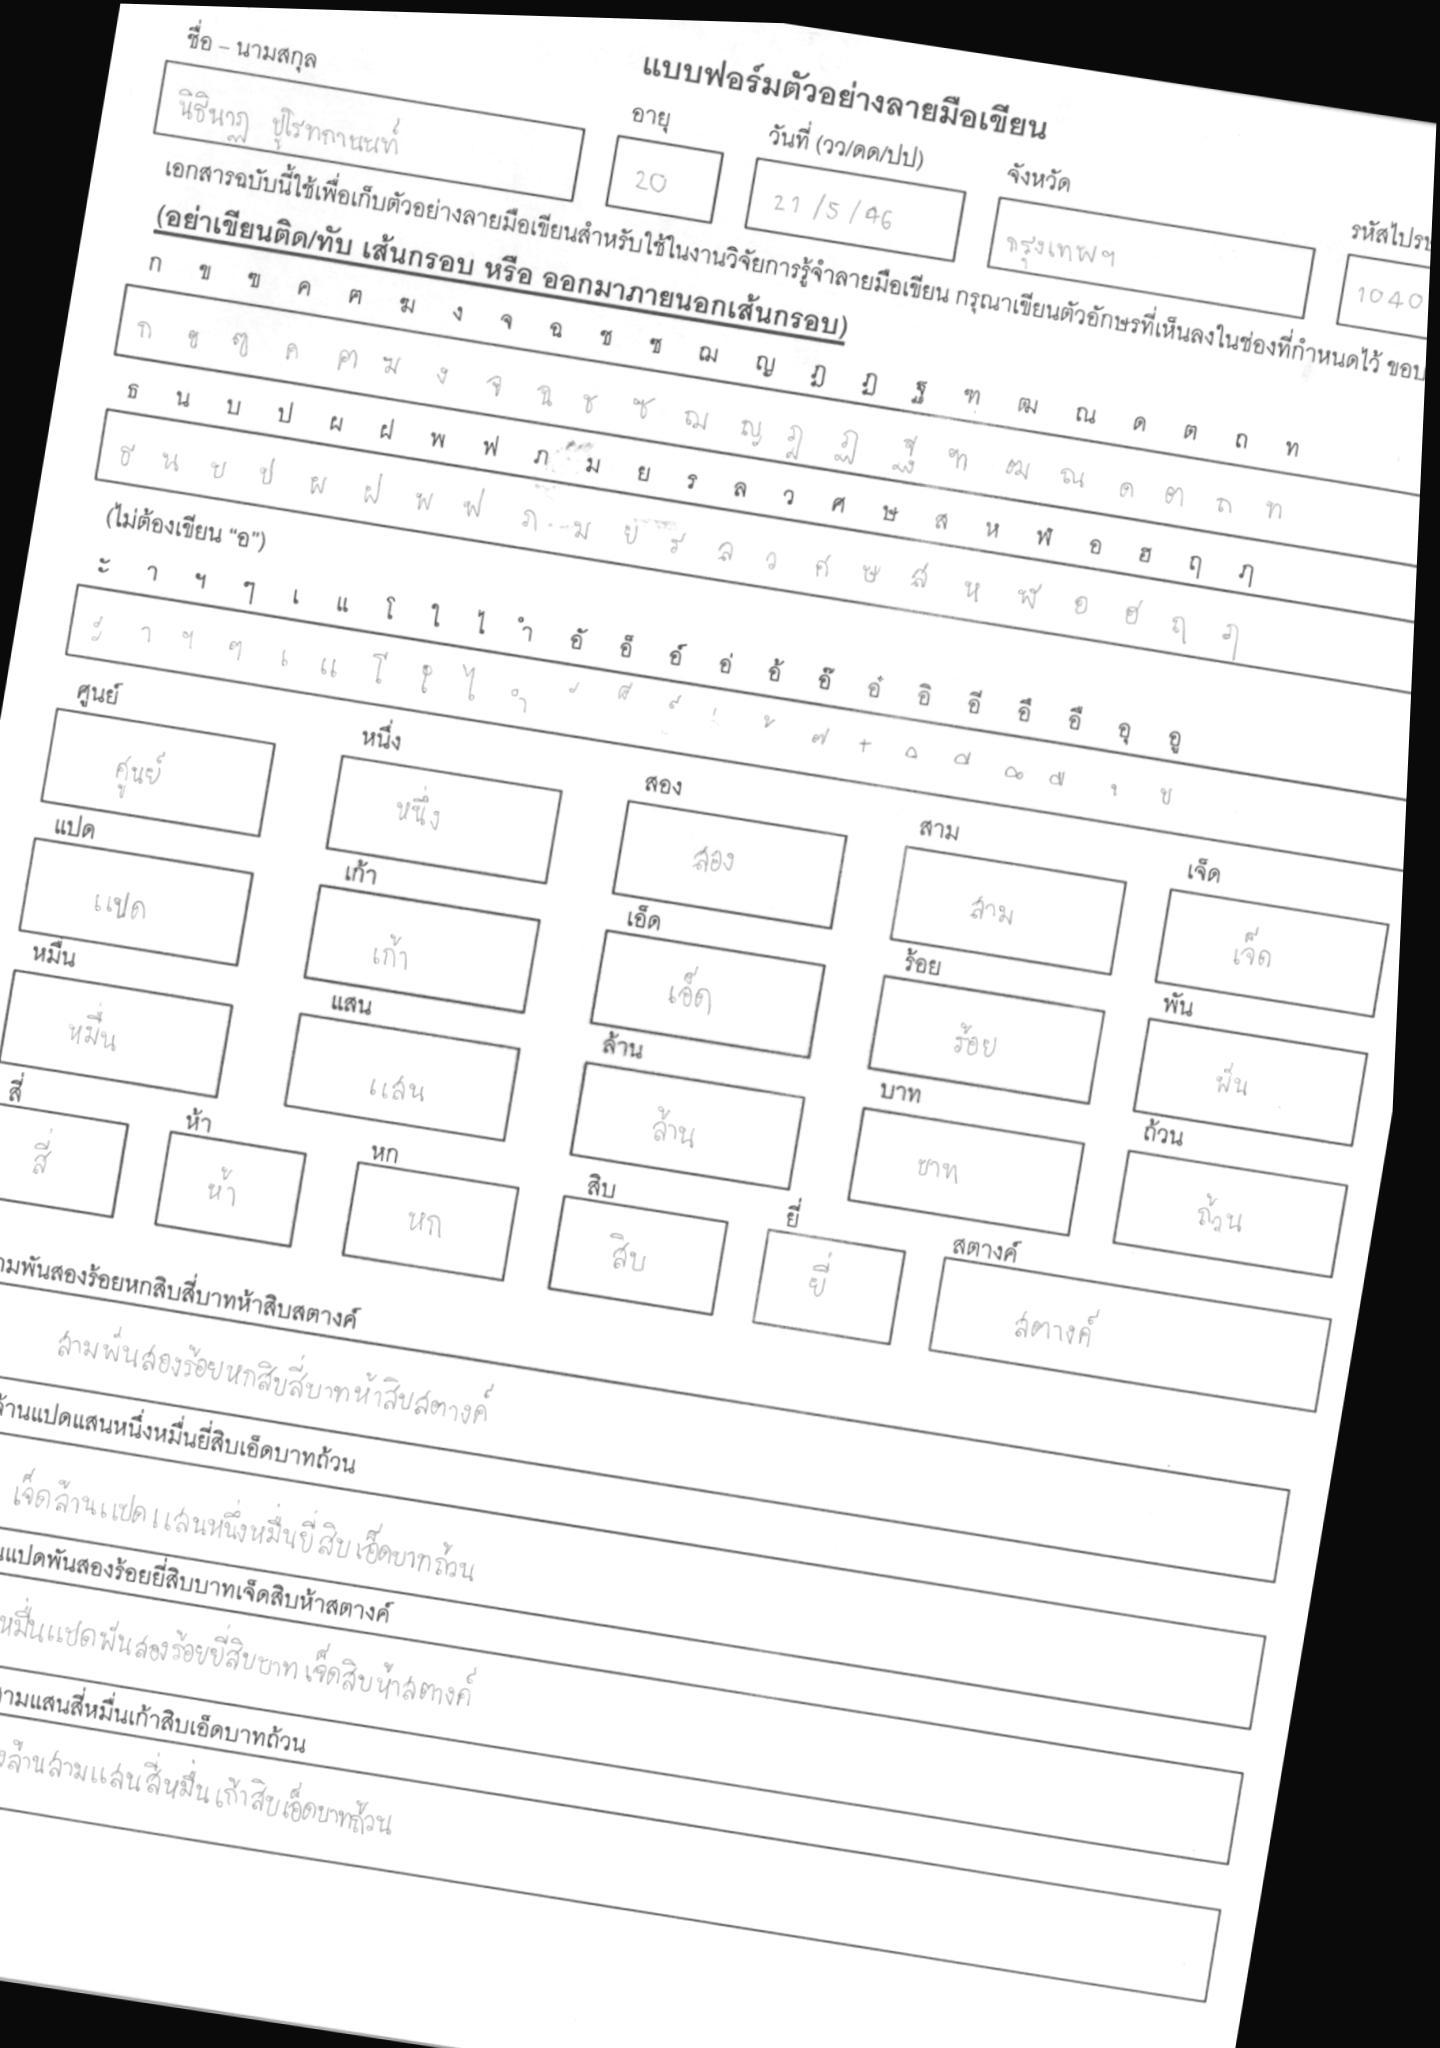 แบบฟอร์มตัวอย่างลายมือเขียน
ชื่อ – นามสกุล อายุ วันที่ (วว/ดด/ปป) จังหวัด
20 21/5/46 กรุงเทพฯ 1040
เอกสารฉบับนี้ใช้เพื่อเก็บตัวอย่างลายมือเขียนสำหรับใช้ในงานวิจัยการรู้จำลายมือเขียน กรุณาเขียนตัวอักษรที่เห็นลงในช่องที่กำหนดไว้ ขอบ
(อย่าเขียนติด/ทับ เส้นกรอบ หรือ ออกมาภายนอกเส้นกรอบ)
ก ข ฃ ค ฅ ฆ ง จ ฉ ช ซ ฌ ญ ฎ ฏ ฐ ฑ ฒ ณ ด ต ถ ท
ก ข ฃ ค ฅ ฆ ง จ ฉ ช ซ ฌ ญ ฎ ฏ ฐ ฑ ฒ ณ ด ต ถ ท
ธ น บ ป ผ ฝ พ ฟ ภ ม ย ร ล ว ศ ษ ส ห ฬ อ ฮ ฤ ฦ
ธ น บ ป ผ ฝ พ ฟ ภ ม ย ร ล ว ศ ษ ส ห ฬ อ ฮ ฤ ฦ
(ไม่ต้องเขียน “อ”)
ะ า ฯ ๆ เ แ โ ใ ไ ำ อั อ็ อ์ อ่ อ้ อ๊ อ๋ อิ อี อึ อื อุ อู
ะ า ฯ ๆ เ แ โ ใ ไ ำ ั ็ ์ ่ ้ ๊ ๋ ิ ี ึ ื ุ ู
ศูนย์ หนึ่ง สอง สาม เจ็ด
ศูนย์ หนึ่ง สอง สาม เจ็ด
แปด เก้า เอ็ด ร้อย พัน
แปด เก้า เอ็ด ร้อย พัน
หมื่น แสน ล้าน บาท ถ้วน
หมื่น แสน ล้าน บาท ถ้วน
สี่ ห้า หก สิบ ยี่ สตางค์
สี่ ห้า หก สิบ ยี่ สตางค์
ามพันสองร้อยหกสิบสี่บาทห้าสิบสตางค์
สามพันสองร้อยหกสิบสี่บาทห้าสิบสตางค์
ล้านแปดแสนหนึ่งหมื่นยี่สิบเอ็ดบาทถ้วน
เจ็ดล้านแปดแสนหนึ่งหมื่นยี่สิบเอ็ดบาทถ้วน
นแปดพันสองร้อยยี่สิบบาทเจ็ดสิบห้าสตางค์
หมื่นแปดพันสองร้อยยี่สิบบาทเจ็ดสิบห้าสตางค์
ามแสนสี่หมื่นเก้าสิบเอ็ดบาทถ้วน
งล้านสามแสนสี่หมื่นเก้าสิบเอ็ดบาทถ้วน